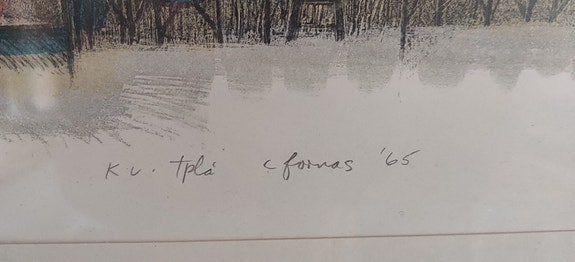 K v. tpl'a c fornas '65